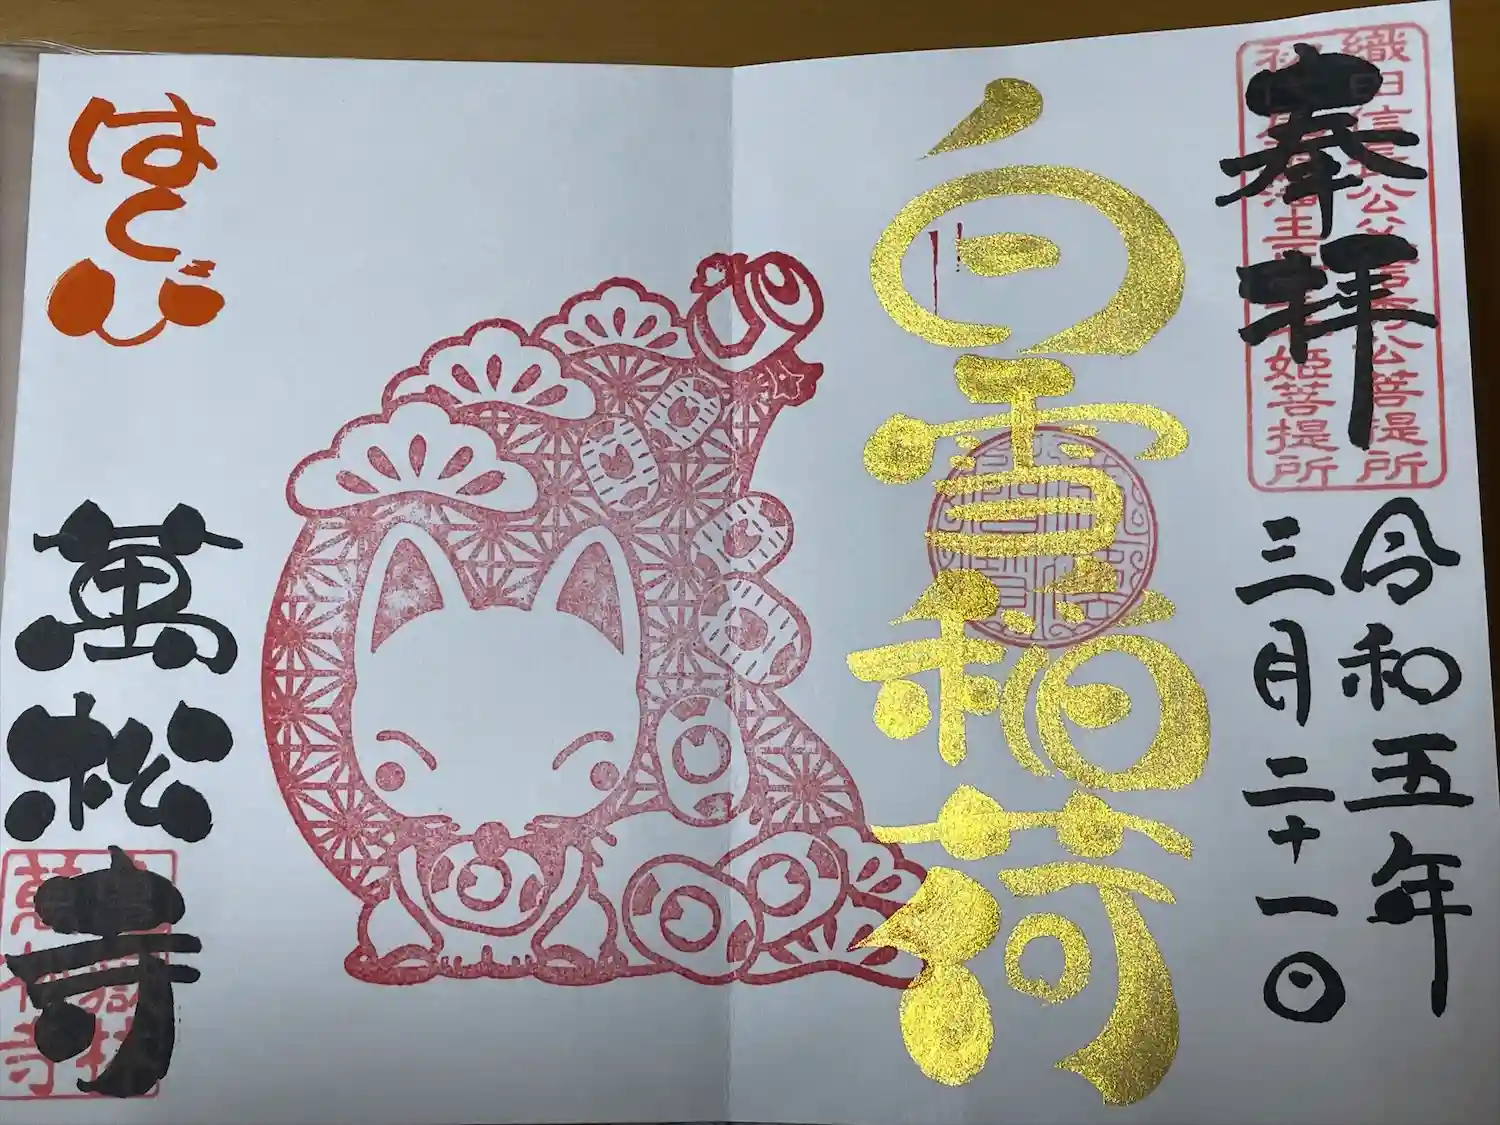 奉拝
織田信長公父信秀公菩提所
姫菩提所
令和五年
三月二十一日
白雪稲荷
はくび
萬松寺